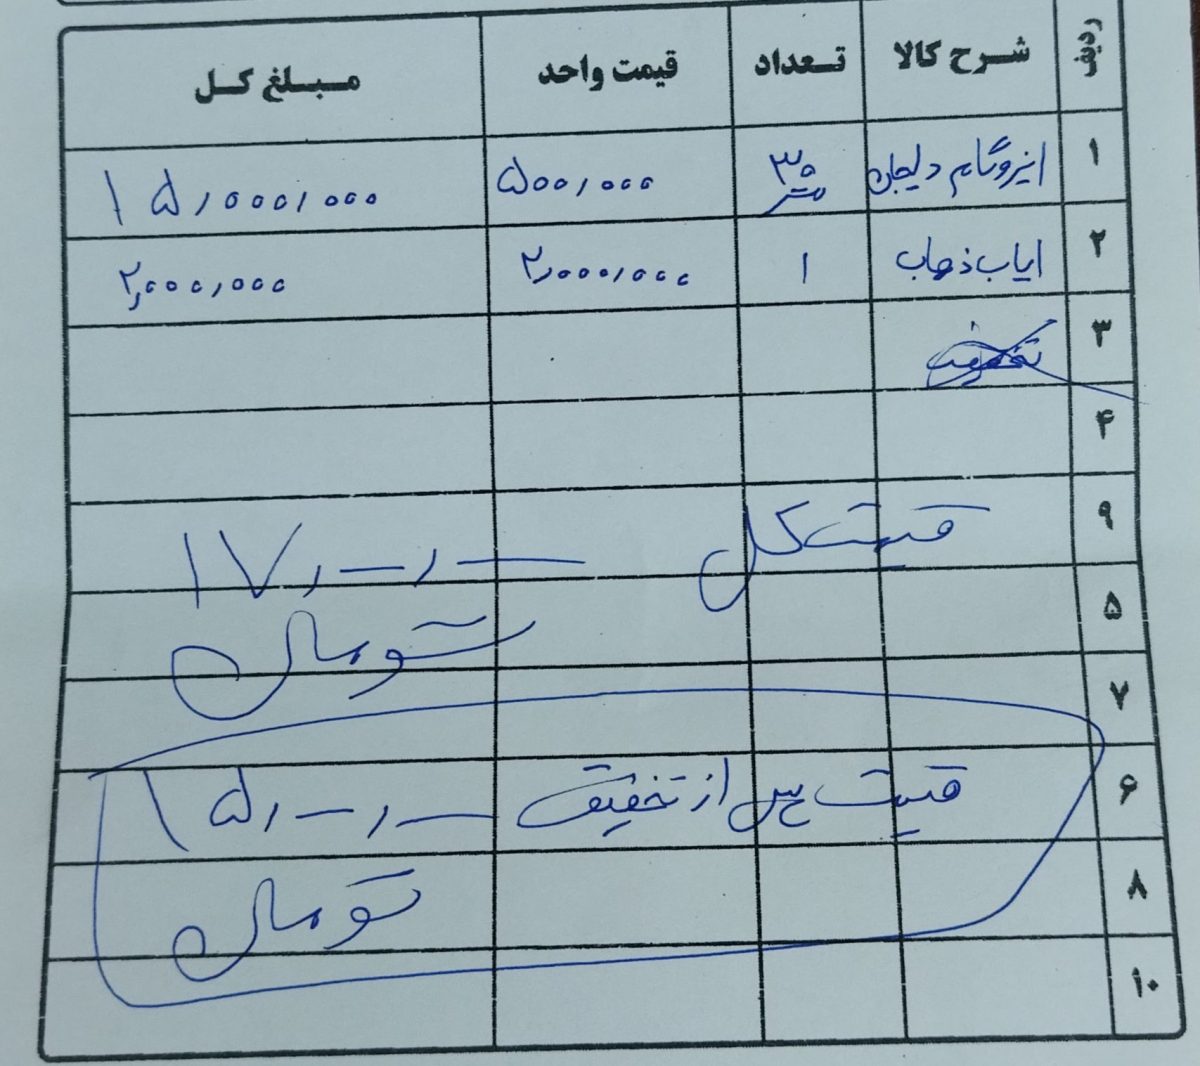 ردیف شرح کالا تعداد قیمت واحد مبلغ کل
۱ ایزوگام دلیجان ۳۰ متر ۵۰۰,۰۰۰ ۱۵,۰۰۰,۰۰۰
۲ ایاب ذهاب ۱ ۲,۰۰۰,۰۰۰ ۲,۰۰۰,۰۰۰
۳ تخفیف
۴
۹ قیمت کل ۱۷,—,—
۵ تومان
۷
۶ قیمت پس از تخفیف ۱۵,—,—
۸ تومان
۱۰